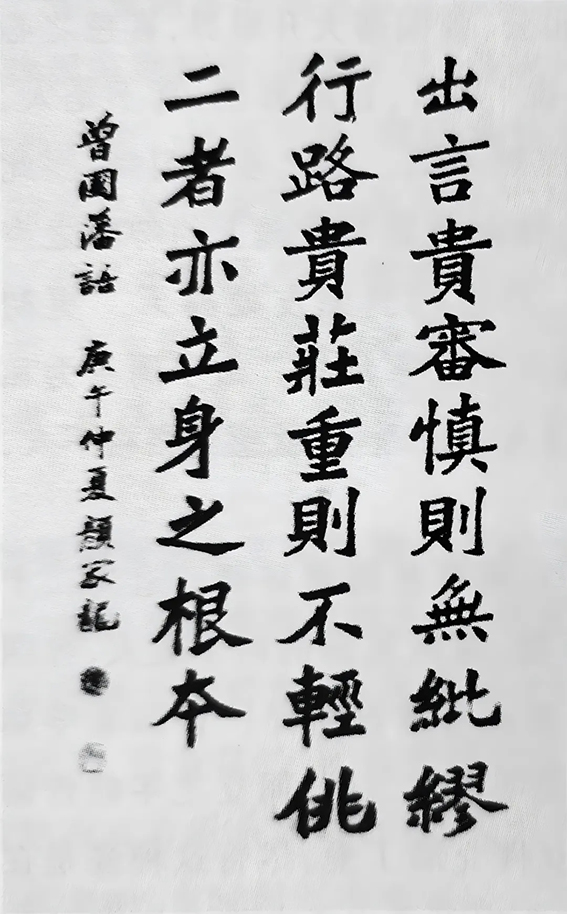 出言貴審慎則無紕繆
行路貴莊重則不輕佻
二者亦立身之根本
曾國藩語 庚午仲夏顏家龍